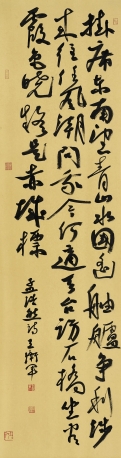 掛席东南望青山水国遥舳艫争利涉
来往任风潮问我今何適天台访石橋坐看
霞色晓疑是赤城標
孟浩然诗王衛軍